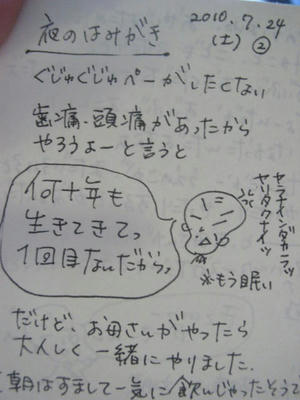 2010.7.24
(土) ②
夜のはみがき
ぐじゅぐじゅペーがしたくない
歯痛・頭痛があったから
やろうよーと言うと
何十年も
生きてきてっ
1回目ないだからっ
ヤラナインダカラァッ
ヤリタクナイッ
※もう眠い
だけど、お母さんがやったら
大人しく一緒にやりました.
朝はすまして一気に飲んじゃったそうで